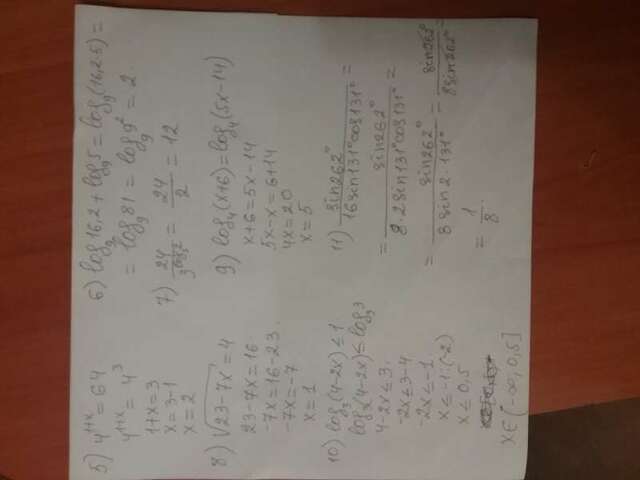 5) 4^{1+x} = 64
4^{1+x} = 4^3
1+x = 3
x = 3-1
x = 2
6) log_9 16,2 + log_9 5 = log_9 (16,2·5) =
= log_9 81 = log_9 9^2 = 2
7) 24/3^{log_3 2} = 24/2 = 12
8) √(23-7x) = 4
23-7x = 16
-7x = 16-23
-7x = -7
x = 1
9) log_4 (x+6) = log_4 (5x-14)
x+6 = 5x-14
5x-x = 6+14
4x = 20
x = 5
10) log_3 (4-2x) ≤ 1
log_3 (4-2x) ≤ log_3 3
4-2x ≤ 3
-2x ≤ 3-4
-2x ≤ -1
x ≤ -1:(-2)
x ≤ 0,5
x∈(-∞; 0,5]
11) sin262°/16sin131°cos131° =
= sin262°/8·2sin131°cos131° =
= sin262°/8sin2·131° = sin262°/8sin262° =
= 1/8.